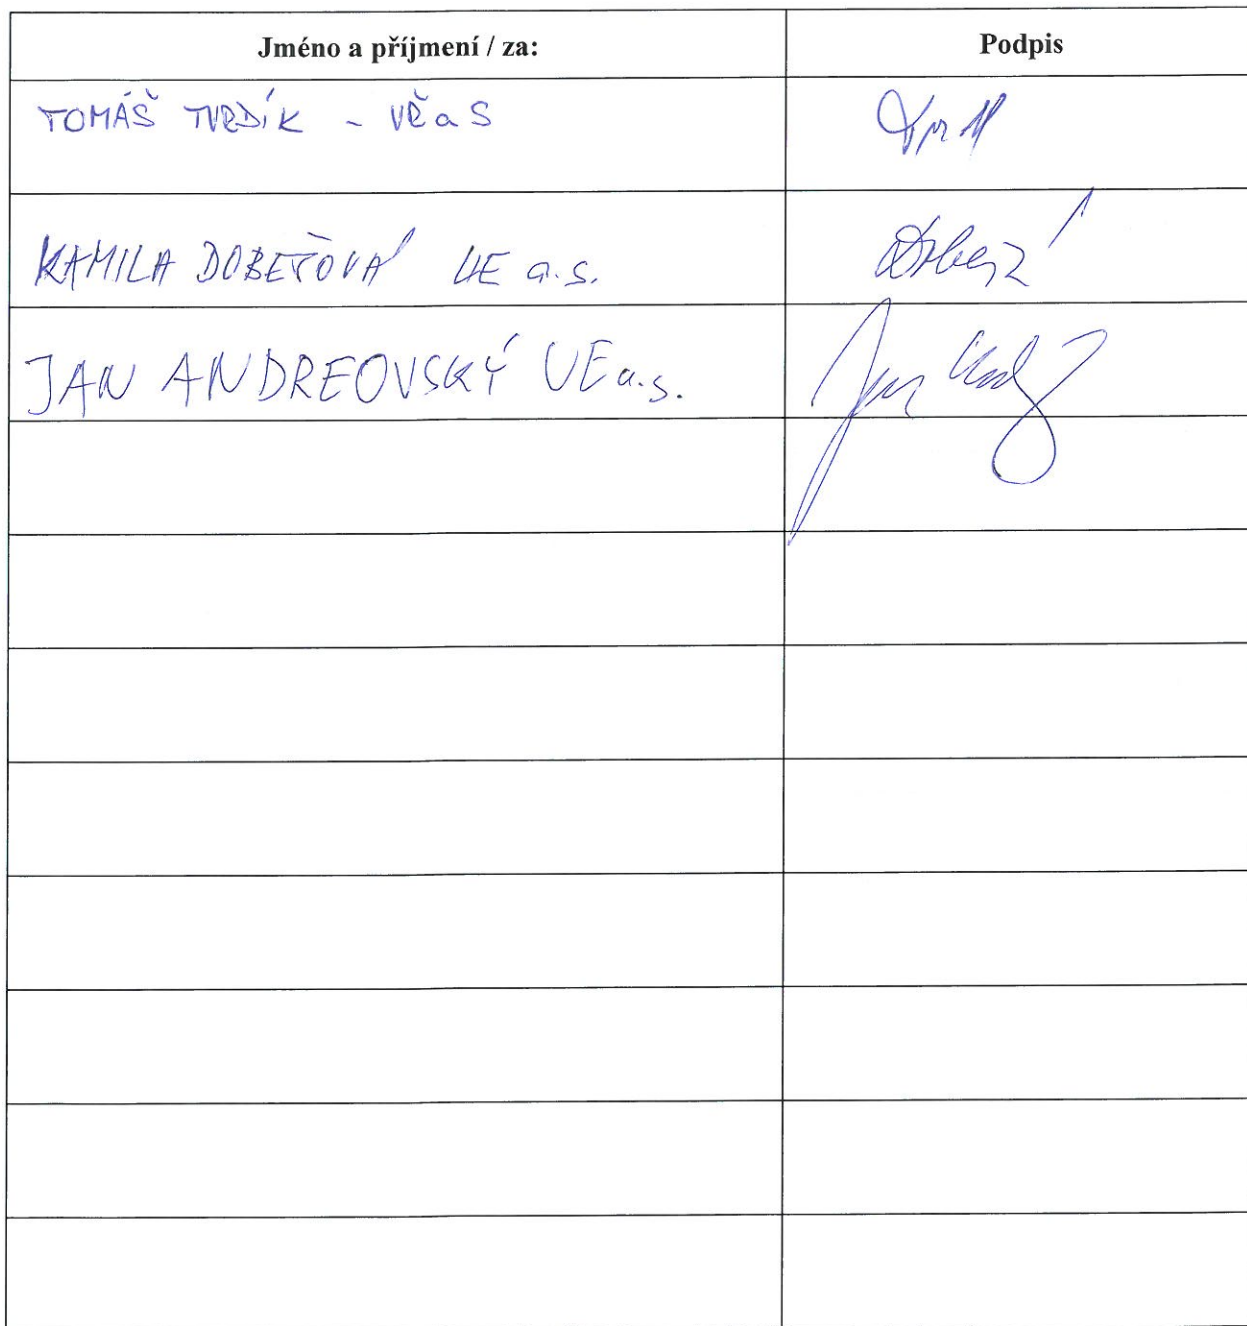 Jméno a příjmení / za: Podpis
TOMÁŠ TVRDÍK - VŘaS
KAMILA DOBEŤOVÁ a.s.
JAN ANDREOVSKÝ VE a.s.